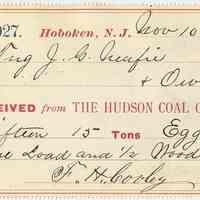 927. Hoboken, N. J. Nov 10
Tug J. G. Neafie
& Ow
EIVED from THE HUDSON COAL C
ifteen 15 Tons Egg
ne Load and 1/2 Wood
F. H. Cooley